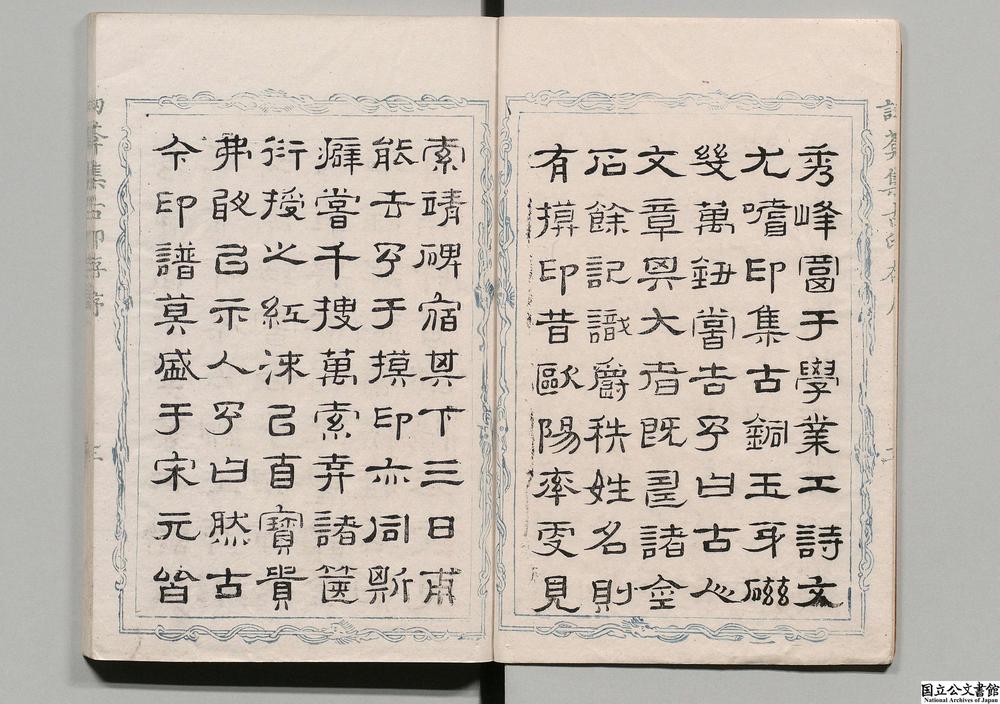 訒葊集古印存序
二
秀峰于學業工詩文
尤嗜印集古銅玉牙磁
幾萬鈕嘗告予曰古之
文章其大者既諸金
石餘記識爵秩姓名則
有摸印昔歐陽率更見
索靖碑宿其下三日甫
能去予于摸印亦同斯
癖嘗千搜萬索弆諸篋
衍授之紅以自寶貴
弗敢以示人予曰然古
今印譜莫盛于宋元皆
訒葊集古印存序
三
国立公文書館
National Archives of Japan